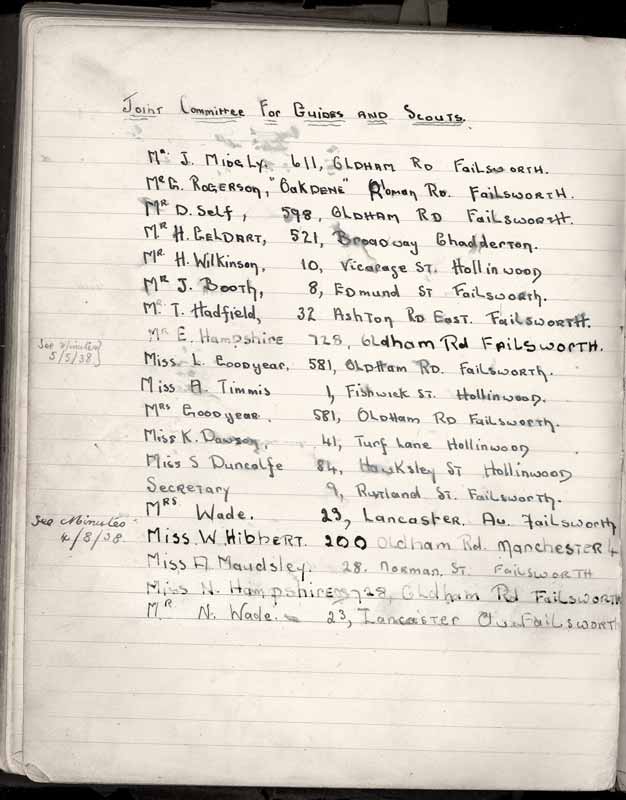 Joint Committee For Guides and Scouts.
Mr. J. Midgly, 611, Oldham Rd Failsworth.
Mr G. Rogerson, "Oakdene" Roman Rd. Failsworth.
Mr D. Self, 598, Oldham Rd Failsworth.
Mr H. Geldart, 521, Broadway Chadderton.
Mr H. Wilkinson, 10, Vicarage St. Hollinwood
Mr J. Booth, 8, Edmund St Failsworth.
Mr. T. Hadfield, 32 Ashton Rd East. Failsworth.
Mr E. Hampshire 728, Oldham Rd Failsworth.
See Minutes 5/5/38
Miss L. Goodyear, 581, Oldham Rd. Failsworth.
Miss A. Timmis 1, Fishwick St. Hollinwood.
Mrs Goodyear. 581, Oldham Rd Failsworth.
Miss K. Dawson, 41, Turf Lane Hollinwood
Miss S Duncalfe 84, Hawksley St Hollinwood
Secretary 9, Rutland St. Failsworth.
Mrs Wade. 23, Lancaster. Av. Failsworth
See Minutes 4/8/38
Miss. W. Hibbert. 200 Oldham Rd. Manchester 4
Miss A. Maudsley. 28. Norman. St. Failsworth
Miss N. Hampshire 728, Oldham Rd Failsworth
Mr N. Wade. 23, Lancaster Av. Failsworth